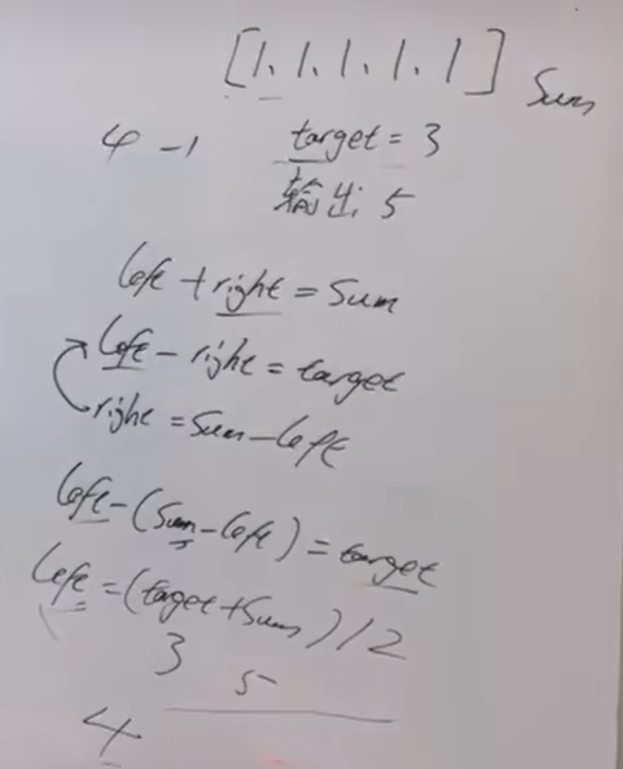 [1. 1. 1. 1. 1] Sum
4 - 1 target = 3
输出 5
left + right = Sum
left - right = target
right = Sum - left
left - (Sum - left) = target
left = (taget + Sum) / 2
3 5
4